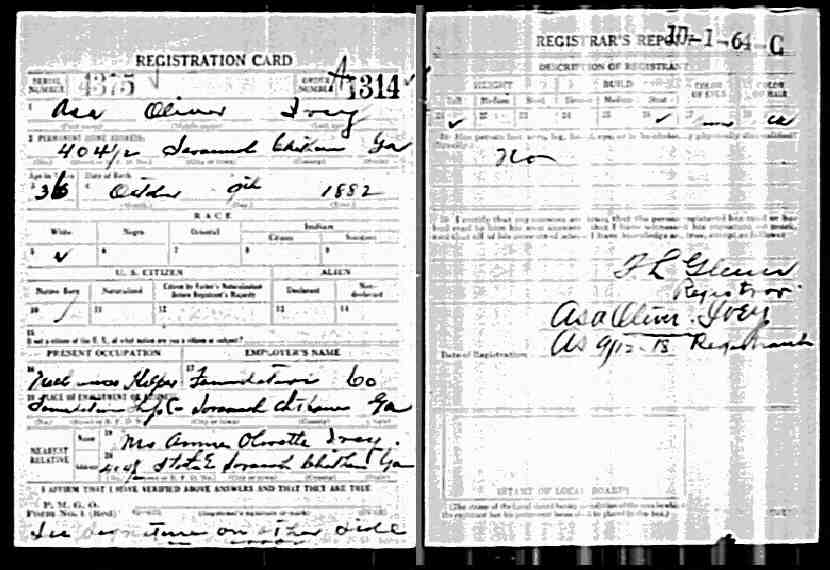 REGISTRATION CARD
SERIAL NUMBER 4375
ORDER NUMBER A1314
1 Asa Oliver Ivey
(First name) (Middle name) (Last name)
2 PERMANENT HOME ADDRESS:
404 1/2 Savannah Chatham Ga
(No.) (City or town) (County) (State)
Age in Years Date of Birth
3 36 4 October 9th 1882
(Month.) (Day.) (Year.)
RACE
White Negro Oriental Indian
Citizen Noncitizen
5 ✓ 6 7 8 9
U. S. CITIZEN ALIEN
Native Born Naturalized Citizen by Father's Naturalization Before Registrant's Majority Declarant Non-declarant
10 11 12 13 14
15
If not a citizen of the U. S., of what nation are you a citizen or subject?
PRESENT OCCUPATION EMPLOYER'S NAME
16 Helper 17 Foundation Co
18 PLACE OF EMPLOYMENT OR BUSINESS:
Foundation Savannah Chatham Ga
NEAREST RELATIVE
Name 19 Mrs Olivette Ivey.
Address 20 State Savannah Chatham Ga
I AFFIRM THAT I HAVE VERIFIED ABOVE ANSWERS AND THAT THEY ARE TRUE
P. M. G. O.
Form No. 1 (Red)
See signature on other side
REGISTRAR'S REPORT 10-1-64-C
DESCRIPTION OF REGISTRANT
HEIGHT BUILD COLOR OF EYES COLOR OF HAIR
Tall Medium Short Slender Medium Stout
21 ✓ 22 23 24 25 26 ✓ 27 28
29 Has person lost arm, leg, hand, eye, or is he physically disqualified?
No
30 I certify that my answers are true; that the person registered has read or has had read to him his own answers; that I have witnessed his signature or mark, and that all of his answers of which I have knowledge are true, except as follows:
Registrar
Asa Oliver Ivey
Date of Registration 9/12-18 Registrant
(STAMP OF LOCAL BOARD)
(The stamp of the Local Board having jurisdiction of the area in which the registrant has his permanent home shall be placed in this box.)